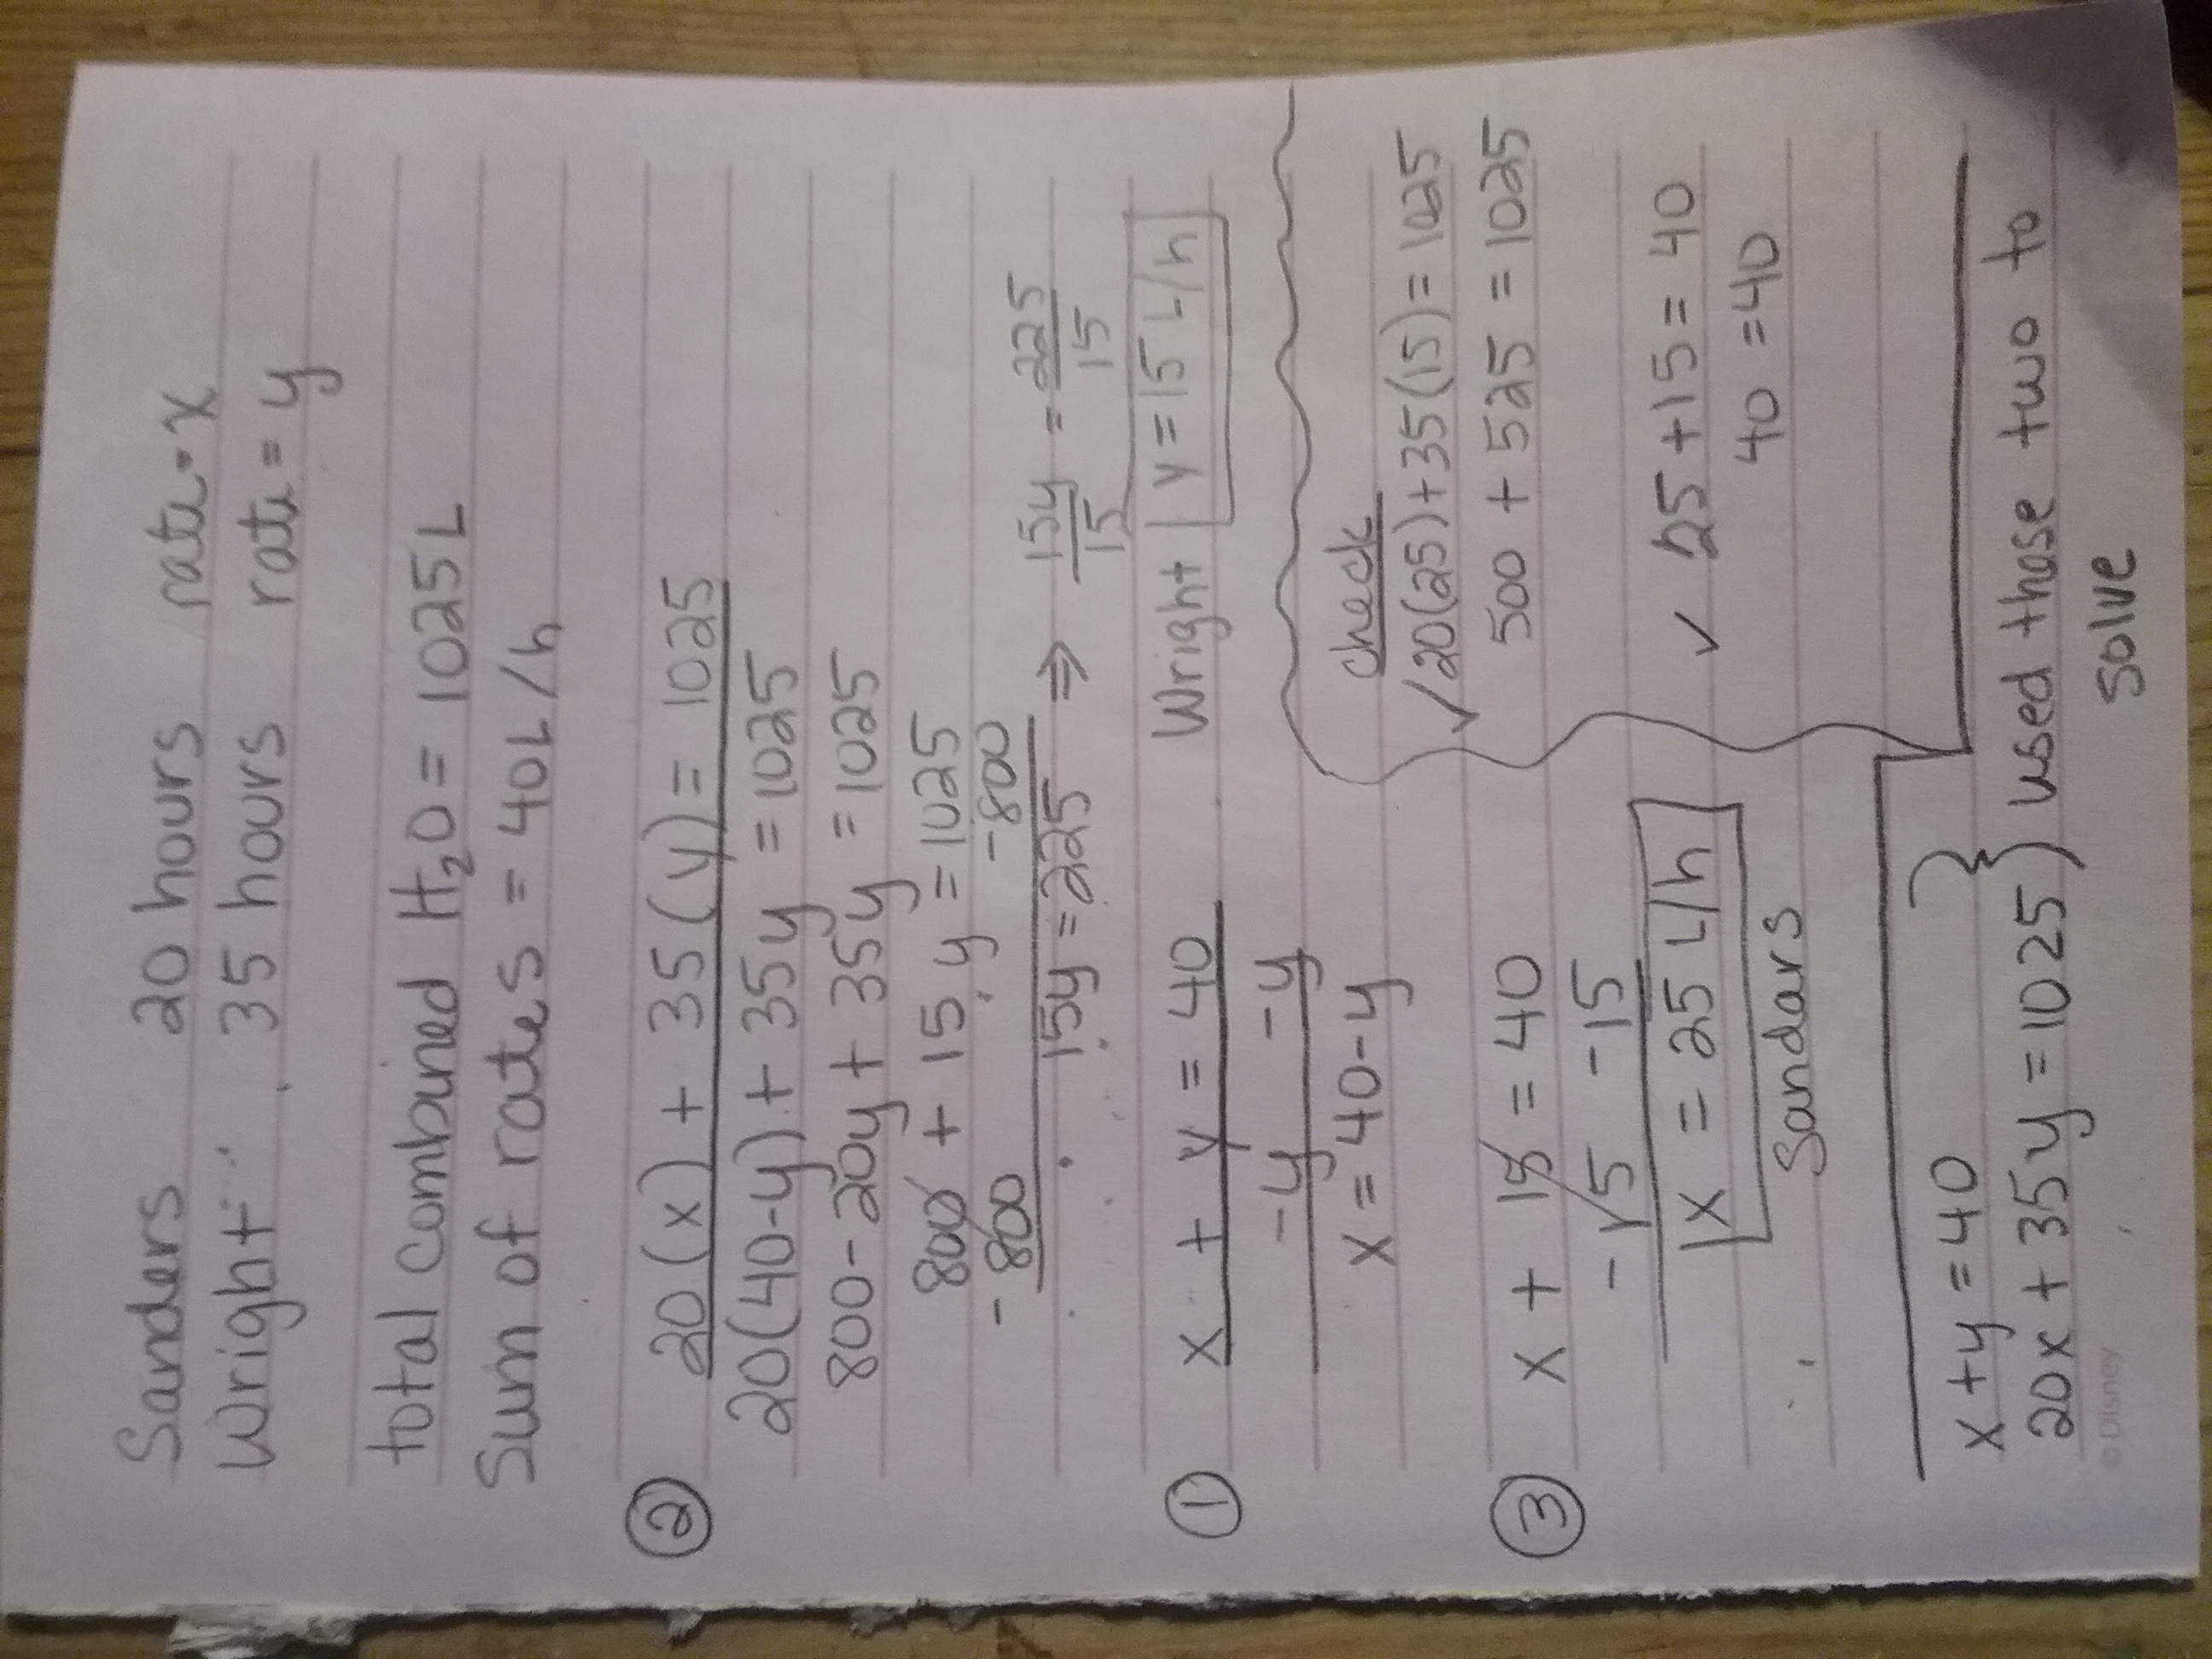 Sanders 20 hours rate = x
Wright 35 hours rate = y
total combined H₂O = 1025 L
Sum of rates = 40L/h
② 20(x) + 35(y) = 1025
20(40-y) + 35y = 1025
800-20y + 35y = 1025
800 + 15y = 1025
-800 -800
15y = 225 ⇒ 15y/15 = 225/15
① x + y = 40 Wright y = 15 L/h
-y -y
x = 40-y
check
✓ 20(25)+35(15) = 1025
500 + 525 = 1025
③ x + 15 = 40
-15 -15
x = 25 L/h
Sanders
✓ 25+15 = 40
40 = 40
x + y = 40
20x + 35y = 1025 } used these two to
solve
© Disney